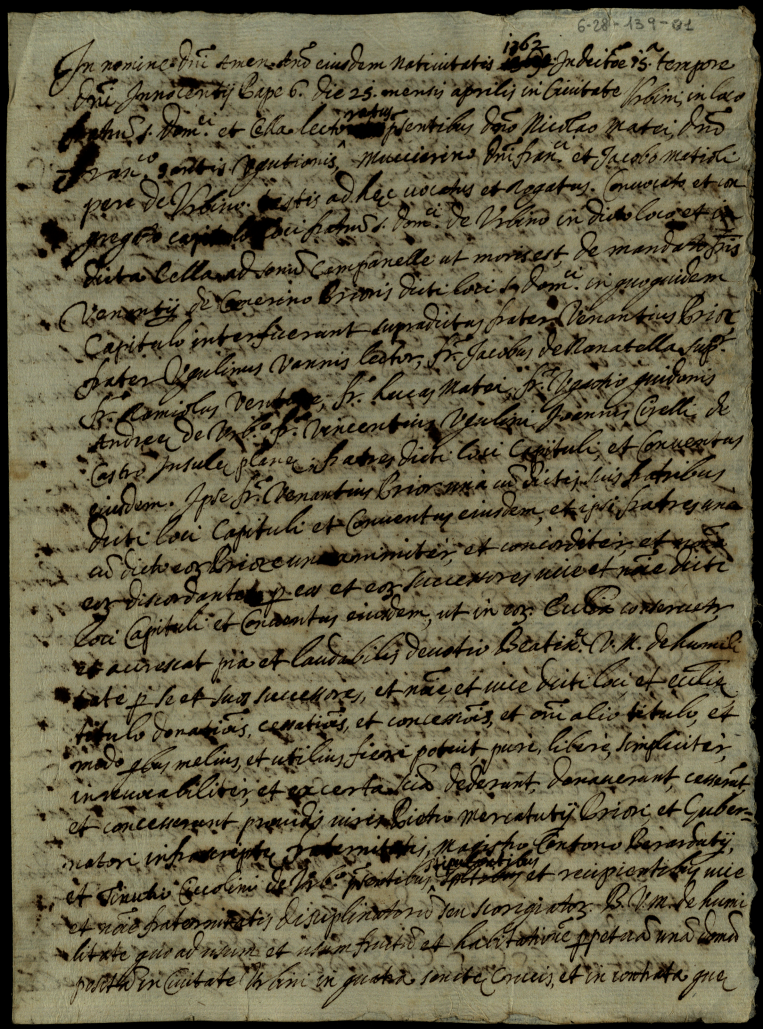 6-28-139-01
1362
In nomine Dni Amen. Anõ eiusdem Nativitatis Indictõe 15.ª tempore
Dni Innocentij Pape 6. die 25. mensis aprilis in Civitate Urbini, in loco
fratrum s. Domci et Cella lectoratus pñtibus Dño Nicolao Matei, Dño
Franco Ugutionis, Mucciarino Dñi franci et Jacobo Matioli
pere de Urbino testis ad hec vocatis et Rogatis. Convocato et con
gregto capitulo loci fratrum s. Domci de Urbino in dicto loco et in
dicta Cella ad sonũ Campanelle ut moris est, de mandato fris
Venantij de Camerino Prioris dicti loci s. Domci. in quoquidem
Capitulo interfuerunt supradictus frater Venantius Prior,
frater Ugulinus Vannis lector, fr. Jacobus de Monatella
fr. Lucas Matei, fr.
Andree de Urbo fr. Vincentius Ugulini Joannis Cirelli de
Castro Insule plane fratres dicti loci Capituli, et Conventus
eiusdem. Ipse fr. Venantius Prior una cũ dictis suis fratribus
dicti loci Capituli et Conventus eiusdem, et ipsi fratres una
cũ dicto eoz Priore unanimiter, et concorditer, et
eoz discordante p eos et eoz successores vice et nõie dicti
loci Capituli et Conventus eiusdem, ut in eoz Ecclia conservetr
et accrescat pia et laudabilis devotio Beatiss. V. M. de humili
tate p se et suos successores, et nõie, et vice dicti loci, et ecclie
titulo donationis, cessationis, et concessionis, et omi alio titulo, et
modo pbus melius, et utilius fieri potuit, pure, libere, simpliciter,
inrevocabiliter, et ex certa sciã dederunt, donaverunt, cesserunt
et concesserunt providis viris Pietro Mercatutij Priori, et Guber=
natori infrascripte fraternitatis, Magistro Berardutij,
stipulantibus
et Ceccolini de Urbo pñtibus, et recipientibus vice
et nõie fraternitatis disciplinatorũ seu scorigiatoz B. V. M. de humi
litate quo ad usum et usumfructũ et habitationẽ ppetuã unã domũ
positã in Civitate Urbini in quatra sancte Crucis, et in contrata que